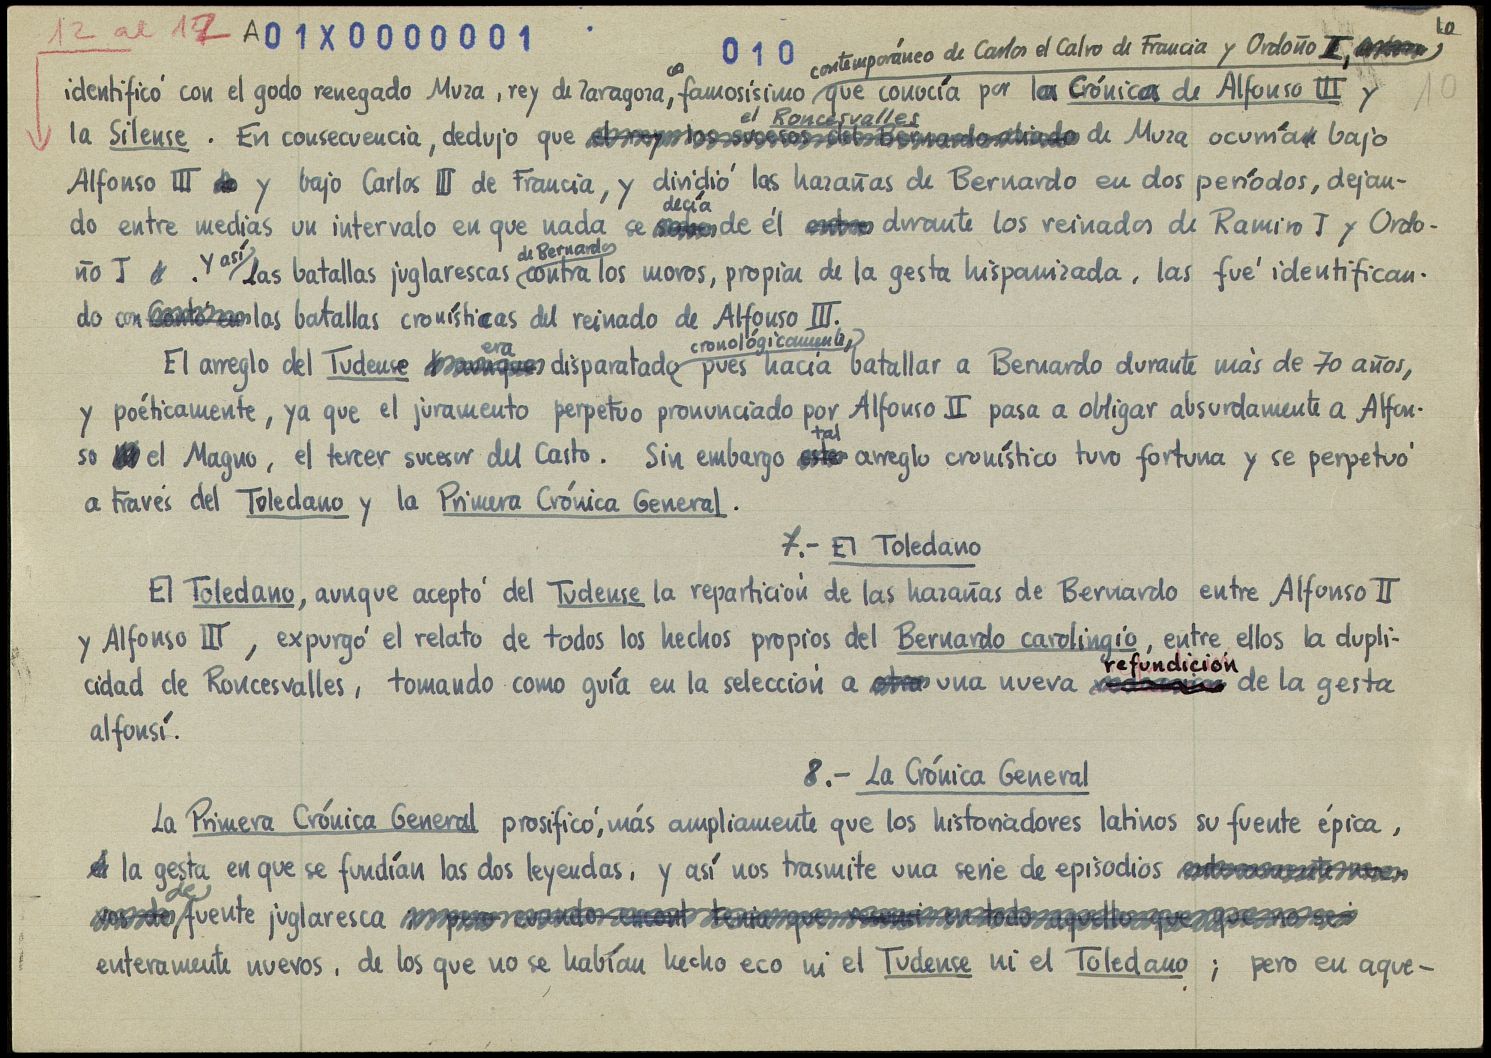 12 al 17 A01X0000001
010
10
10
contemporáneo de Carlos el Calvo de Francia y Ordoño I,
identificó con el godo renegado Muza, rey de Zaragoza, famosísimo que conocía por la Crónica de Alfonso III y
el Roncesvalles
la Silense. En consecuencia, dedujo que de Muza ocurría bajo
Alfonso III y bajo Carlos III de Francia, y dividió las hazañas de Bernardo en dos períodos, dejan-
decía
do entre medias un intervalo en que nada se de él durante los reinados de Ramiro I y Ordo-
de Bernardo
ño I. Y así las batallas juglarescas contra los moros, propias de la gesta hispanizada, las fué identifican-
do con las batallas cronísticas del reinado de Alfonso III.
era cronológicamente,
El arreglo del Tudense disparatado pues hacía batallar a Bernardo durante más de 70 años,
y poéticamente, ya que el juramento perpetuo pronunciado por Alfonso II pasa a obligar absurdamente a Alfon-
tal
so el Magno, el tercer sucesor del Casto. Sin embargo arreglo cronístico tuvo fortuna y se perpetuó
a través del Toledano y la Primera Crónica General.
7.- El Toledano
El Toledano, aunque aceptó del Tudense la repartición de las hazañas de Bernardo entre Alfonso II
y Alfonso III, expurgó el relato de todos los hechos propios del Bernardo carolingio, entre ellos la dupli-
refundición
cidad de Roncesvalles, tomando como guía en la selección a una nueva de la gesta
alfonsí.
8.- La Crónica General
La Primera Crónica General prosificó, más ampliamente que los historiadores latinos su fuente épica,
la gesta en que se fundían las dos leyendas, y así nos trasmite una serie de episodios
de
fuente juglaresca
enteramente nuevos, de los que no se habían hecho eco ni el Tudense ni el Toledano; pero en aque-